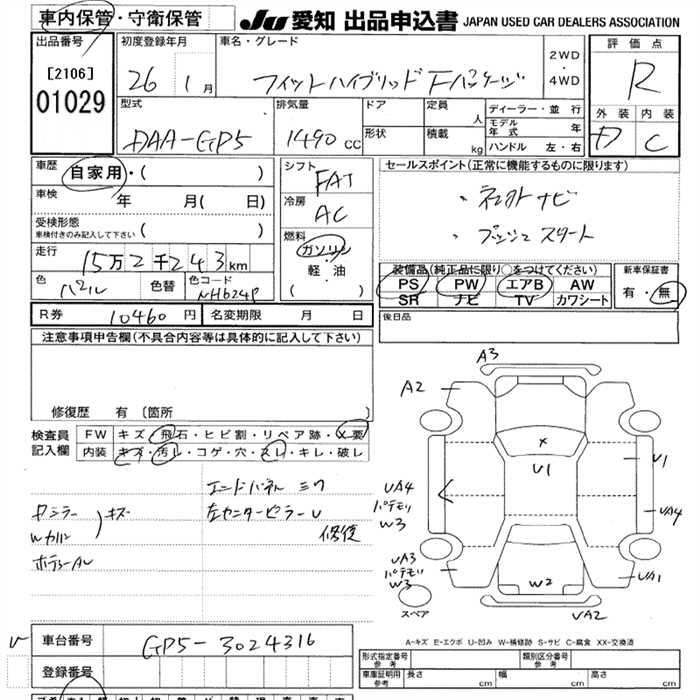 車内保管・守衛保管
JU 愛知 出品申込書 JAPAN USED CAR DEALERS ASSOCIATION
出品番号
[2106]
01029
初度登録年月
26 1月
車名・グレード
フィットハイブリッド Fパッケージ
2WD
・
4WD
評価点
R
外装 内装
D C
型式
DAA-GP5
排気量
1490 CC
ドア
形状
定員
人
積載
kg
ディーラー・並 行
モデル年式 年
ハンドル 左・右
車歴
自家用・( )
車検
年 月( 日)
受検形態
車検付きのみ記入して下さい
( )
走行
15万2千243km
色
パール
色替
色コード
NH624P
シフト
FAT
冷房
AC
燃料
ガソリン
軽 油
( )
セールスポイント(正常に機能するものに限ります)
・ ナビ
・ プッシュスタート
装備品(純正品に限り〇をつけてください)
PS PW エアB AW
SR ナビ TV カワシート
新車保証書
有・無
後日品
R券 10460 円
名変期限 月 日
注意事項申告欄(不具合内容等は具体的に記入して下さい)
修復歴 有 [箇所 ]
検査員
記入欄
FW キズ・飛石・ヒビ割・リペア跡・X要
内装 キズ・汚し・コゲ・穴・スレ・キレ・破レ
エンドパネル ミワ
左センターピラーU
修復
キズ
A3
A2
X
U1
U1
UA4
パテモリ
W3
UA4
UA3
パテモリ
W3
W2
UA1
UA2
スペア
A-キズ E-エクボ U-凹み W-補修跡 S-サビ C-腐食 XX-交換済
車台番号
GP5-3024316
登録番号
形式指定番号
参考
類別区分番号
参考
車庫証明用
参考
長さ cm
幅 cm
高さ cm